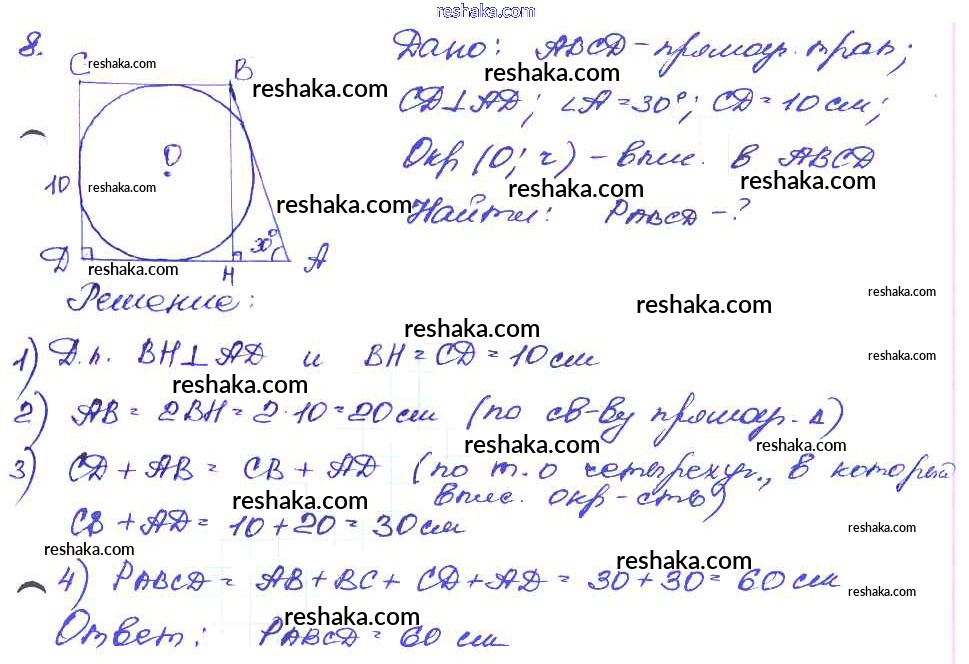 reshaka.com
8.
Дано: ABCD – прямоуг. трап;
C reshaka.com
B reshaka.com
reshaka.com
CD⊥AD; ∠A = 30°; CD = 10 см;
O
Окр (O; r) – впис. в ABCD
10 reshaka.com
reshaka.com
reshaka.com
reshaka.com
Найти: PABCD – ?
30°
D
H
A
reshaka.com
Решение:
reshaka.com
reshaka.com
reshaka.com
1) Д.п. BH⊥AD и BH = CD = 10 см
reshaka.com
reshaka.com
2) AB = 2BH = 2·10 = 20 см (по св-ву прямоуг. Δ)
reshaka.com
reshaka.com
3) CD + AB = CB + AD (по т. о четырехуг., в который
впис. окр-сть)
reshaka.com
CB + AD = 10 + 20 = 30 см
reshaka.com
reshaka.com
reshaka.com
4) PABCD = AB + BC + CD + AD = 30 + 30 = 60 см
reshaka.com
reshaka.com
Ответ: PABCD = 60 см